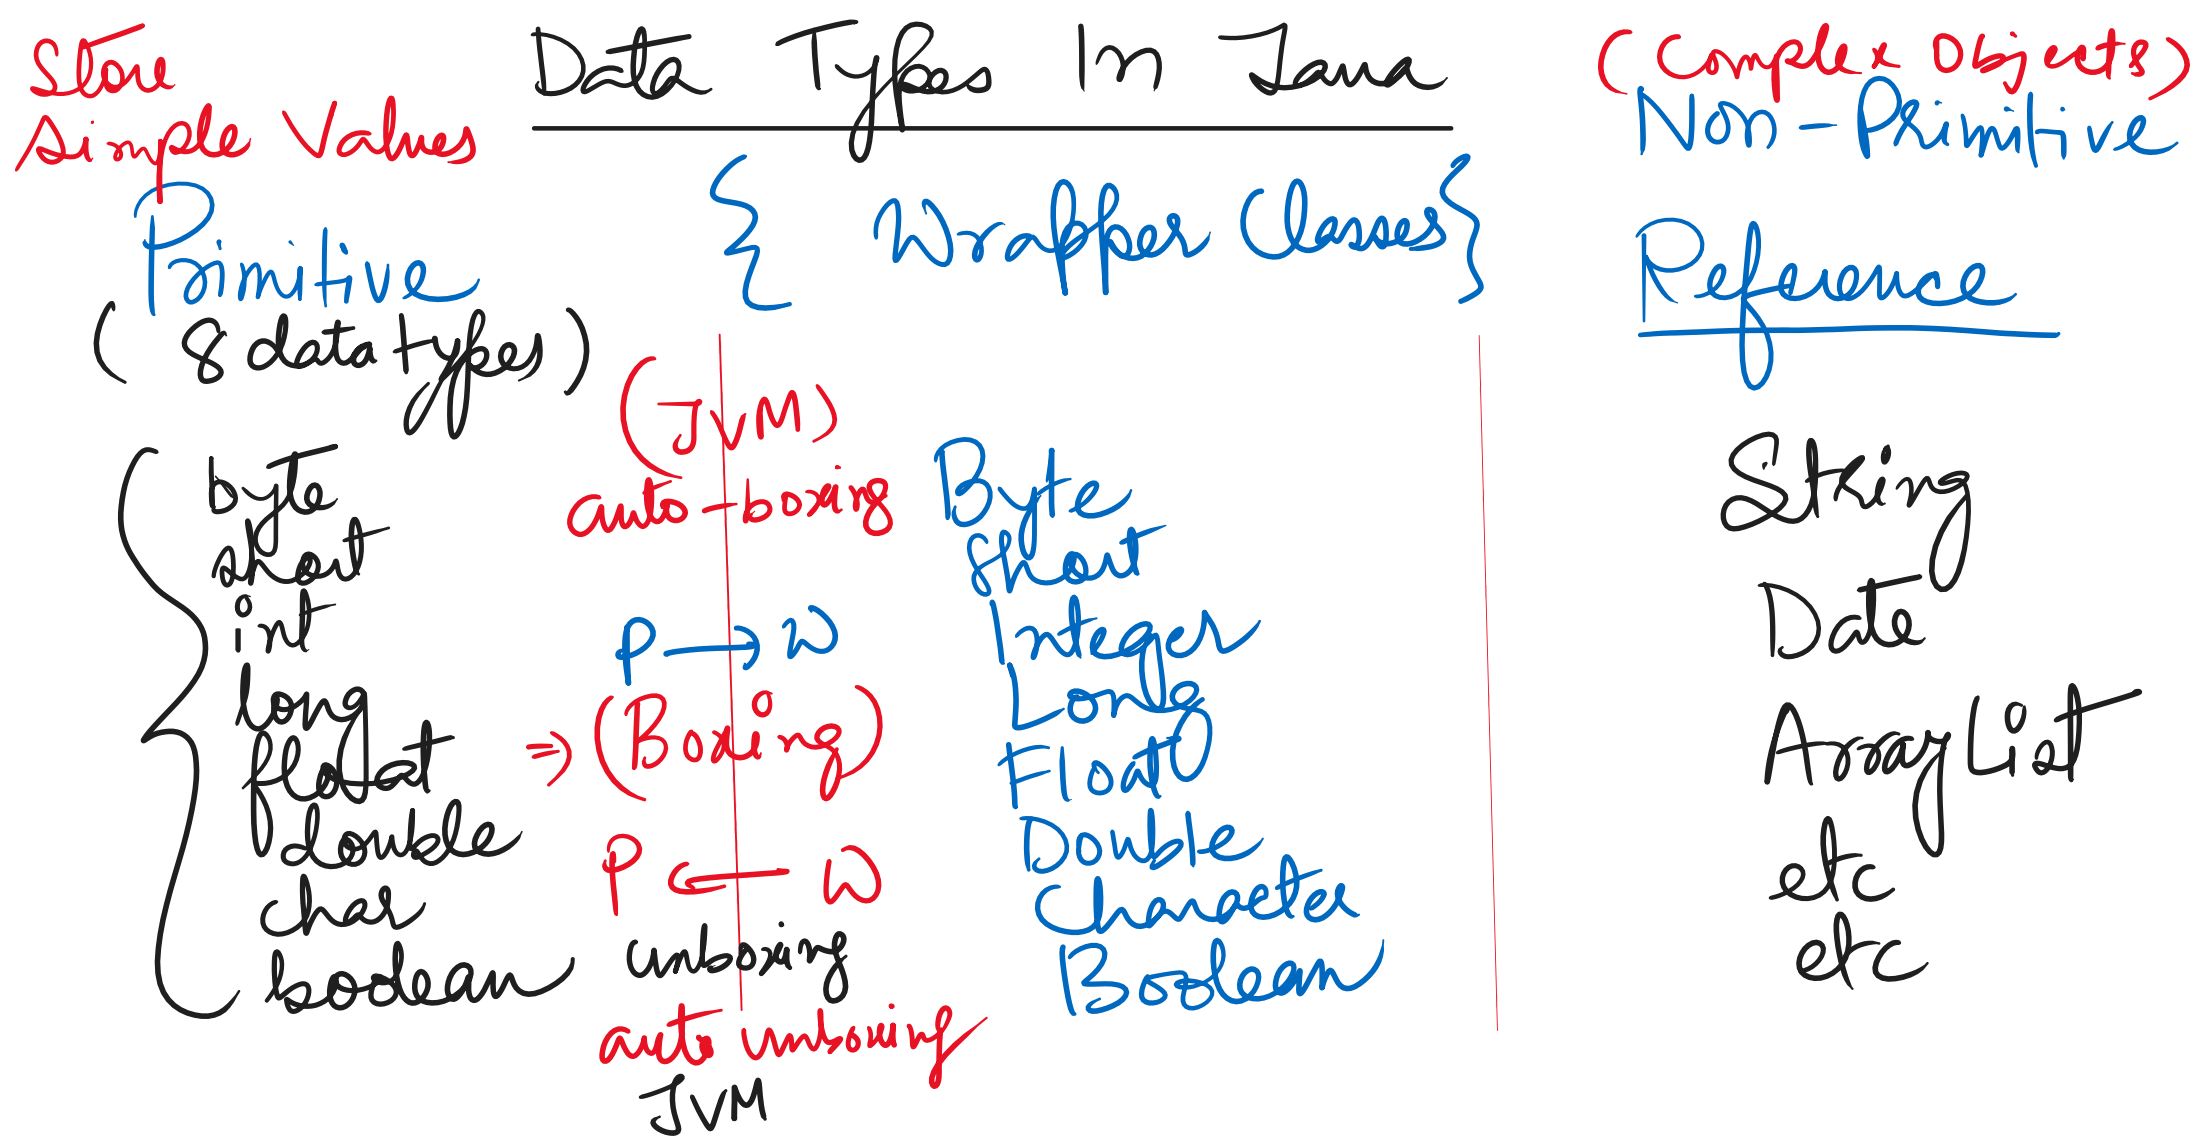 Data Types In Java
Store
Simple Values
Primitive
( 8 data types )
byte
short
int
long
float
double
char
boolean
{ Wrapper Classes }
(JVM)
auto-boxing
P → W
⇒ (Boxing)
P ← W
unboxing
auto unboxing
JVM
Byte
Short
Integer
Long
Float
Double
Character
Boolean
(Complex Objects)
Non-Primitive
Reference
String
Date
ArrayList
etc
etc